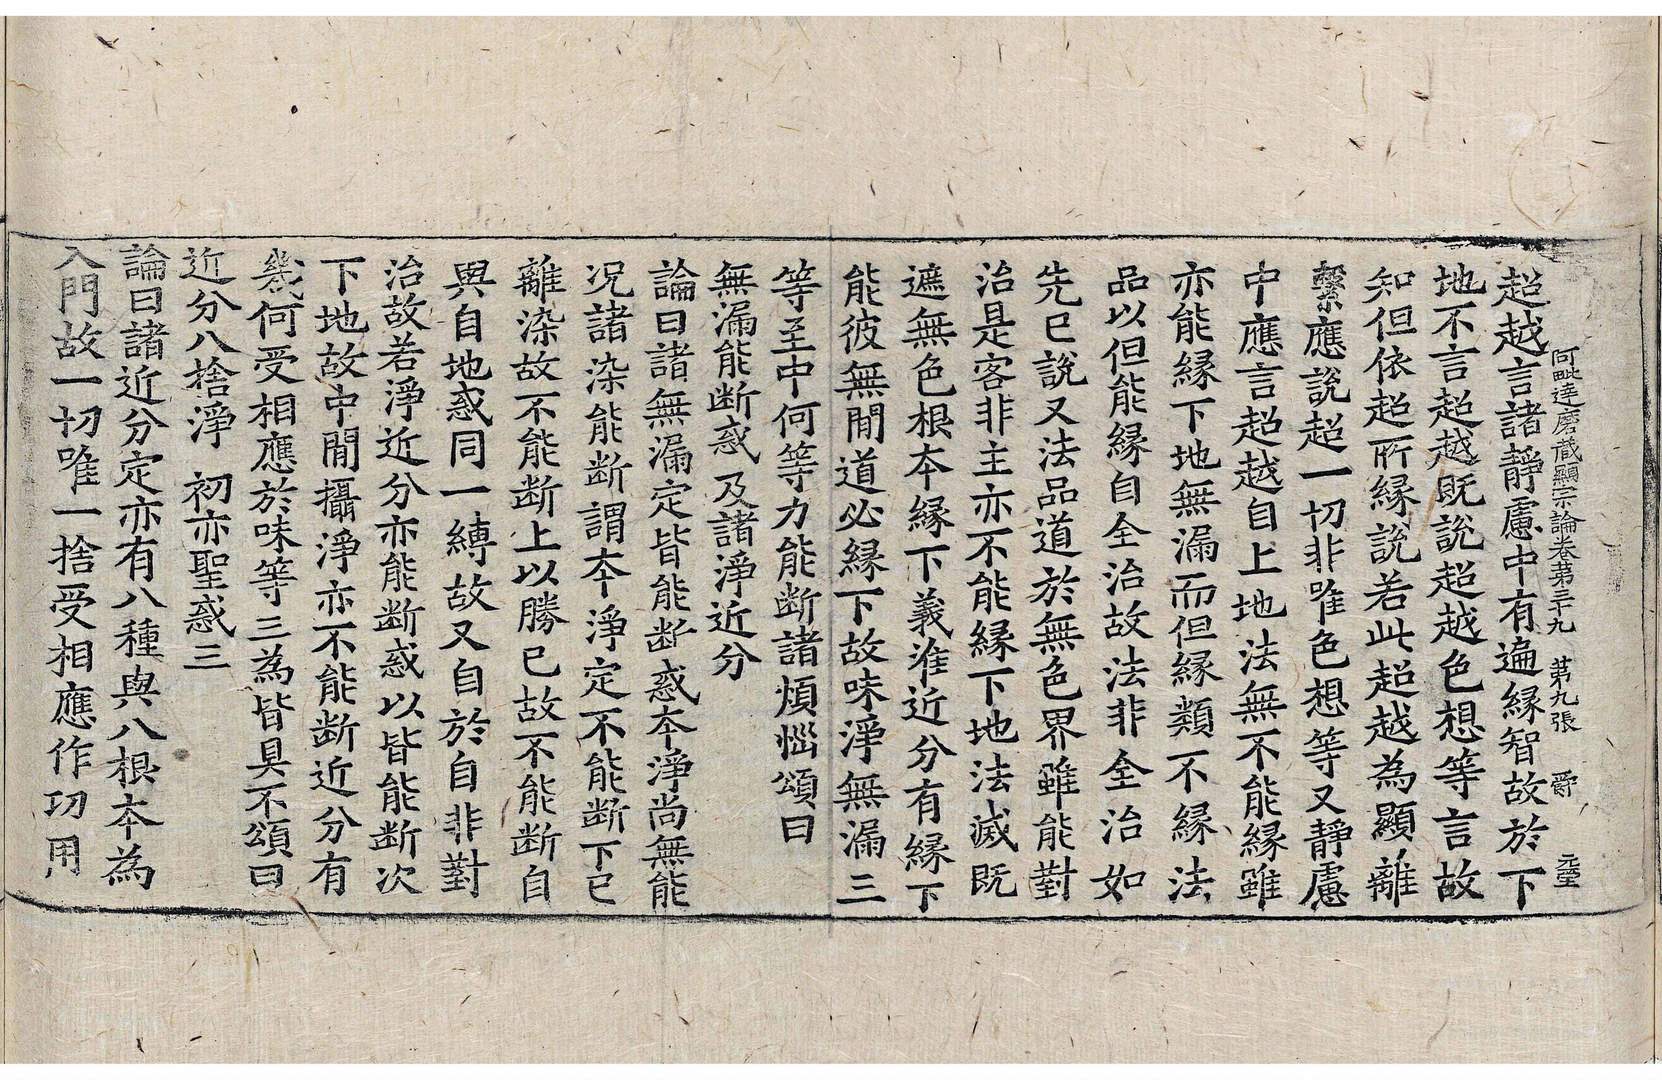 阿毗達磨藏顯宗論卷第三十九 第九張 爵
超越言諸靜慮中有遍緣智故於下
地不言超越既說超越色想等言故
知但依超所緣說若此超越為顯離
繫應說超一切非唯色想等又靜慮
中應言超越自上地法無不能緣雖
亦能緣下地無漏而但緣類不緣法
品以但能緣自全治故法非全治如
先已說又法品道於無色界雖能對
治是客非主亦不能緣下地法滅既
遮無色根本緣下義准近分有緣下
能彼無間道必緣下故味淨無漏三
等至中何等力能斷諸煩惱頌曰
無漏能斷惑 及諸淨近分
論曰諸無漏定皆能斷惑本淨尚無能
況諸染能斷謂本淨定不能斷下已
離染故不能斷上以勝已故不能斷自
與自地惑同一縛故又自於自非對
治故若淨近分亦能斷惑以皆能斷次
下地故中間攝淨亦不能斷近分有
幾何受相應於味等三為皆具不頌曰
近分八捨淨 初亦聖惑三
論曰諸近分定亦有八種與八根本為
入門故一切唯一捨受相應作功用